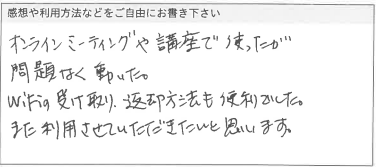 感想や利用方法などをご自由にお書き下さい
オンラインミーティングや講座で使ったが
問題なく動いた。
WiFiの受け取り、返却方法も便利でした。
また利用させていただきたいと思います。